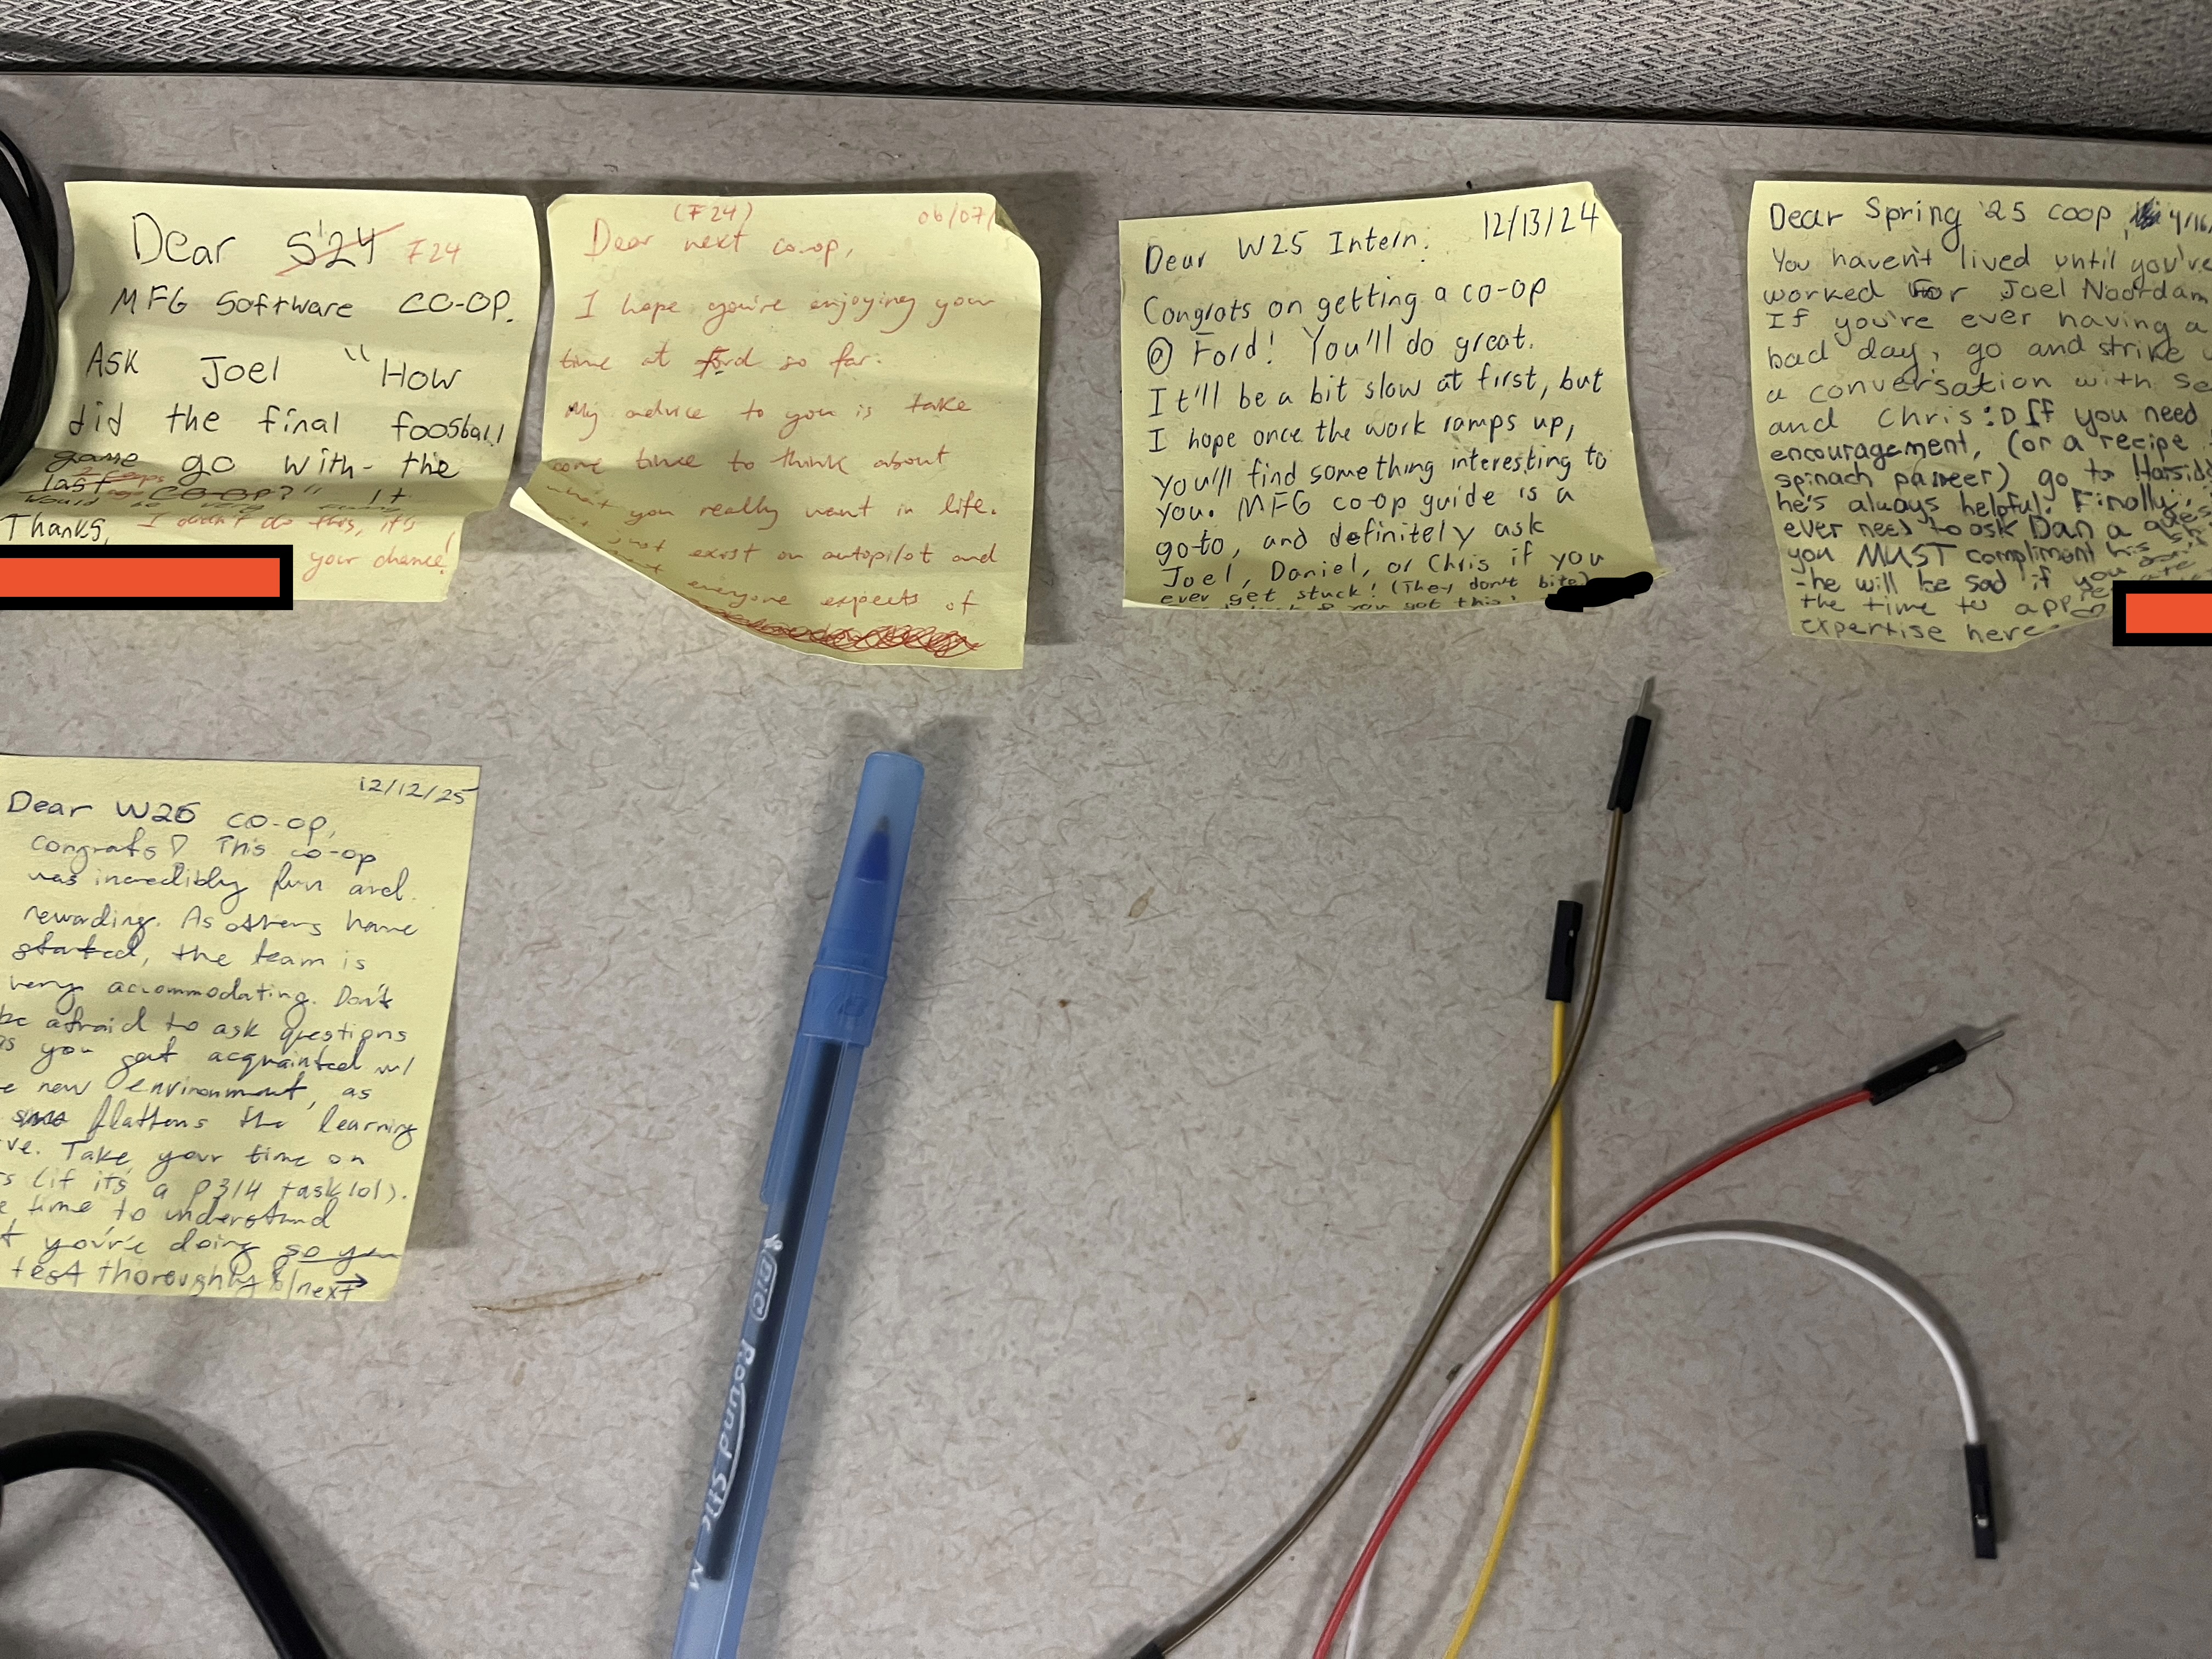 Dear S'24 F24
MFG Software CO-OP.
ASK Joel "How
did the final foosball
game go with the
last CO-OP?" It
would be very funny
Thanks, I didn't do this, it's
your chance!
(F24) 06/07/
Dear next co-op,
I hope you're enjoying your
time at Ford so far.
My advice to you is take
some time to think about
what you really want in life.
just exist on autopilot and
everyone expects of
Dear W25 Intern: 12/13/24
Congrats on getting a co-op
@ Ford! You'll do great.
It'll be a bit slow at first, but
I hope once the work ramps up,
you'll find something interesting to
you. MFG co-op guide is a
go-to, and definitely ask
Joel, Daniel, or Chris if you
ever get stuck! (They don't bite)
you got this!
Dear Spring '25 coop, 4/16/
You haven't lived until you've
worked for Joel Noordam
If you're ever having a
bad day, go and strike
a conversation with
and Chris :D If you need
encouragement, (or a recipe
spinach paneer) go to
he's always helpful. Finally,
ever need to ask Dan a
you MUST compliment his
-he will be sad if you
the time to
expertise here.
12/12/25
Dear W26 co-op,
congrats! This co-op
was incredibly fun and
rewarding. As others have
started, the team is
very accommodating. Don't
be afraid to ask questions
as you get acquainted w/
new environment, as
flattens the learning
ve. Take your time on
s (if it's a P3/4 task lol).
time to understand
t you're doing so you
test thoroughly b/next →
BIC Round Stic M